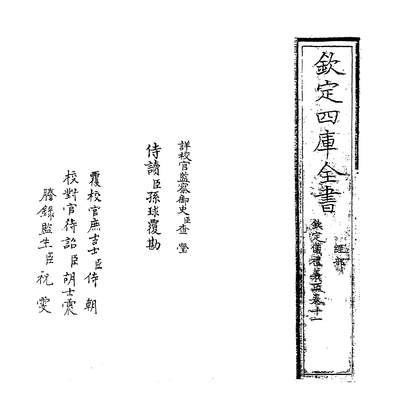 欽定四庫全書
經部
欽定儀禮義疏卷十二
詳校官監察御史臣查瑩
侍讀臣孫球覆勘
覆校官庶吉士臣侍朝
校對官待詔臣胡士震
謄錄監生臣祝雯